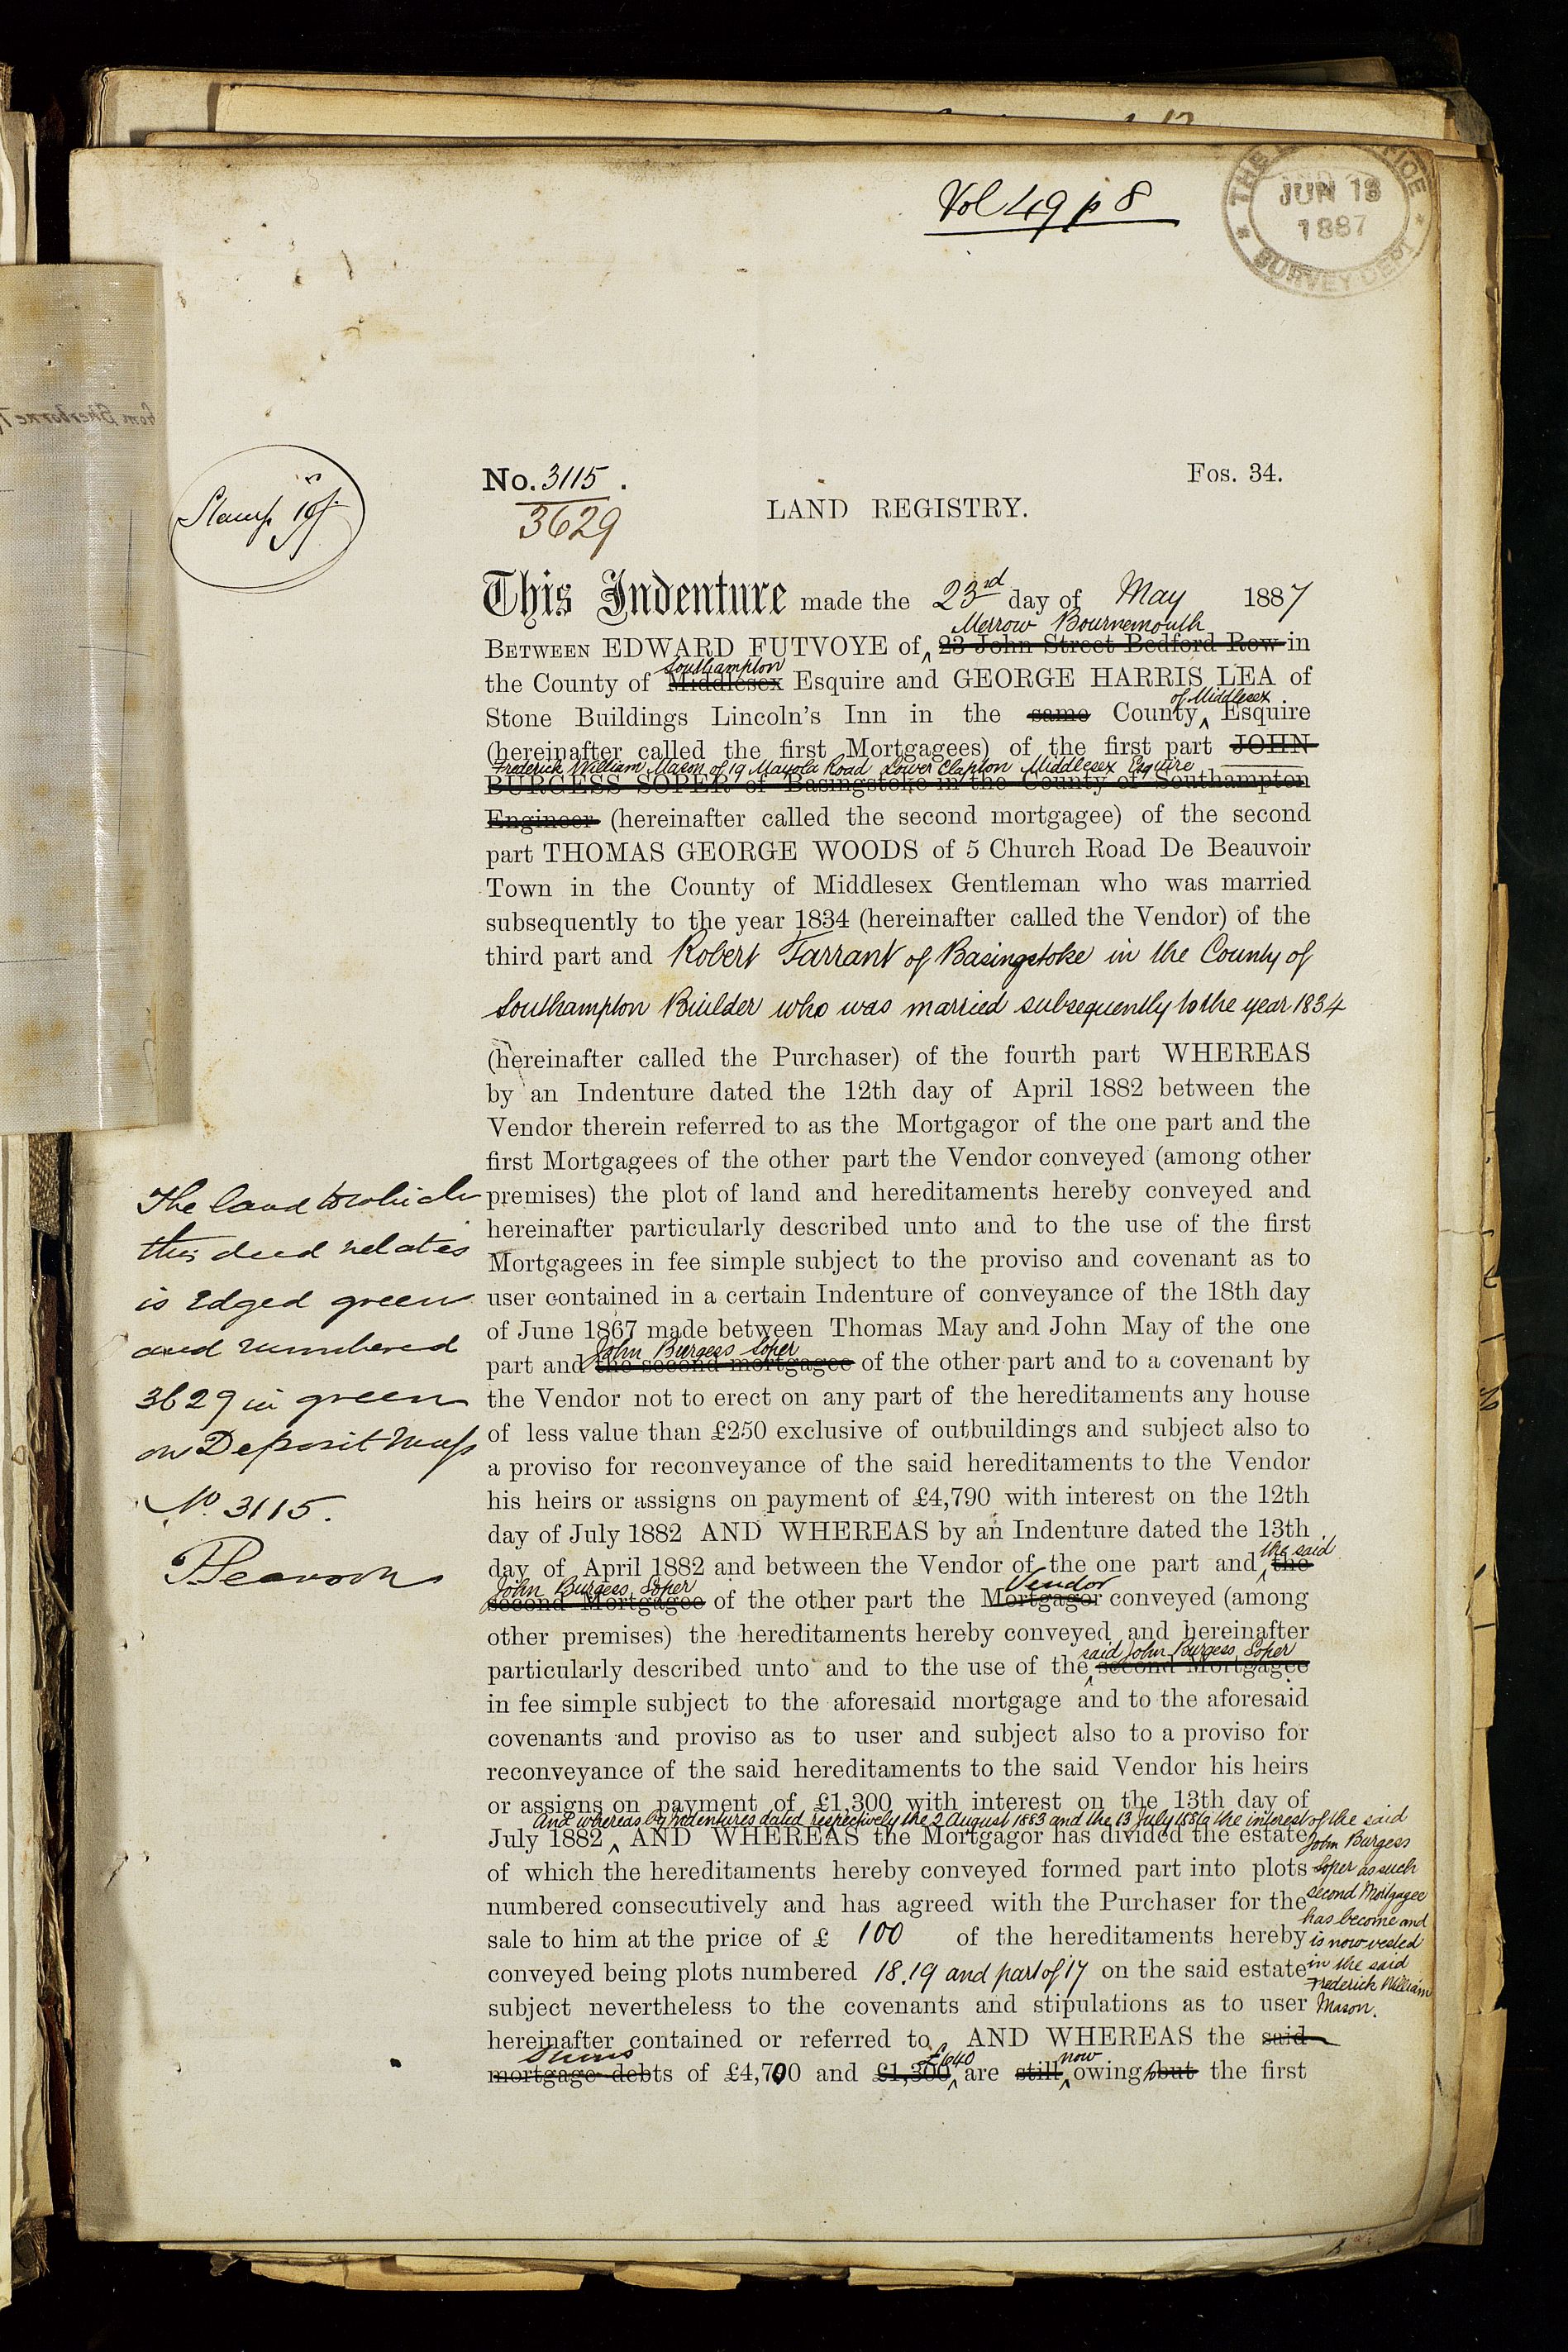 Vol 49 p 8
JUN 13
1887
SURVEY DEPT
No. 3115.
Fos. 34.
3629
LAND REGISTRY.
Stamp 10/-
This Indenture made the 23rd day of May 1887
Merrow Bournemouth
BETWEEN EDWARD FUTVOYE of ‸ 23 John Street Bedford Row in
Southampton
the County of Middlesex Esquire and GEORGE HARRIS LEA of
of Middlesex
Stone Buildings Lincoln's Inn in the same County ‸ Esquire
(hereinafter called the first Mortgagees) of the first part JOHN
Frederick William Mason of 19 Mayola Road Lower Clapton Middlesex Esquire
BURGESS SOPER of Basingstoke in the County of Southampton
Engineer (hereinafter called the second mortgagee) of the second
part THOMAS GEORGE WOODS of 5 Church Road De Beauvoir
Town in the County of Middlesex Gentleman who was married
subsequently to the year 1834 (hereinafter called the Vendor) of the
third part and Robert Tarrant of Basingstoke in the County of
Southampton Builder who was married subsequently to the year 1834
(hereinafter called the Purchaser) of the fourth part WHEREAS
by an Indenture dated the 12th day of April 1882 between the
Vendor therein referred to as the Mortgagor of the one part and the
first Mortgagees of the other part the Vendor conveyed (among other
premises) the plot of land and hereditaments hereby conveyed and
hereinafter particularly described unto and to the use of the first
Mortgagees in fee simple subject to the proviso and covenant as to
user contained in a certain Indenture of conveyance of the 18th day
of June 1867 made between Thomas May and John May of the one
John Burgess Soper
part and the second mortgagee of the other part and to a covenant by
the Vendor not to erect on any part of the hereditaments any house
of less value than £250 exclusive of outbuildings and subject also to
a proviso for reconveyance of the said hereditaments to the Vendor
his heirs or assigns on payment of £4,790 with interest on the 12th
day of July 1882 AND WHEREAS by an Indenture dated the 13th
the said
day of April 1882 and between the Vendor of the one part and ‸ the
John Burgess Soper Vendor
second Mortgagee of the other part the Mortgagor conveyed (among
other premises) the hereditaments hereby conveyed and hereinafter
said John Burgess Soper
particularly described unto and to the use of the ‸ second Mortgagee
in fee simple subject to the aforesaid mortgage and to the aforesaid
covenants and proviso as to user and subject also to a proviso for
reconveyance of the said hereditaments to the said Vendor his heirs
or assigns on payment of £1,300 with interest on the 13th day of
And whereas by Indentures dated respectively the 2 August 1883 and the 13 July 1886 the interest of the said
July 1882 ‸ AND WHEREAS the Mortgagor has divided the estate
of which the hereditaments hereby conveyed formed part into plots
numbered consecutively and has agreed with the Purchaser for the
sale to him at the price of £ 100 of the hereditaments hereby
conveyed being plots numbered 18.19 and part of 17 on the said estate
subject nevertheless to the covenants and stipulations as to user
hereinafter contained or referred to AND WHEREAS the said
Sums £640 now
mortgage debts of £4,700 and £1,300 ‸ are still ‸ owing but the first
John Burgess
Soper as such
second Mortgagee
has become and
is now vested
in the said
Frederick William
Mason.
The land to which
this deed relates
is Edged green
and numbered
3629 in green
on Deposit Map
No. 3115.